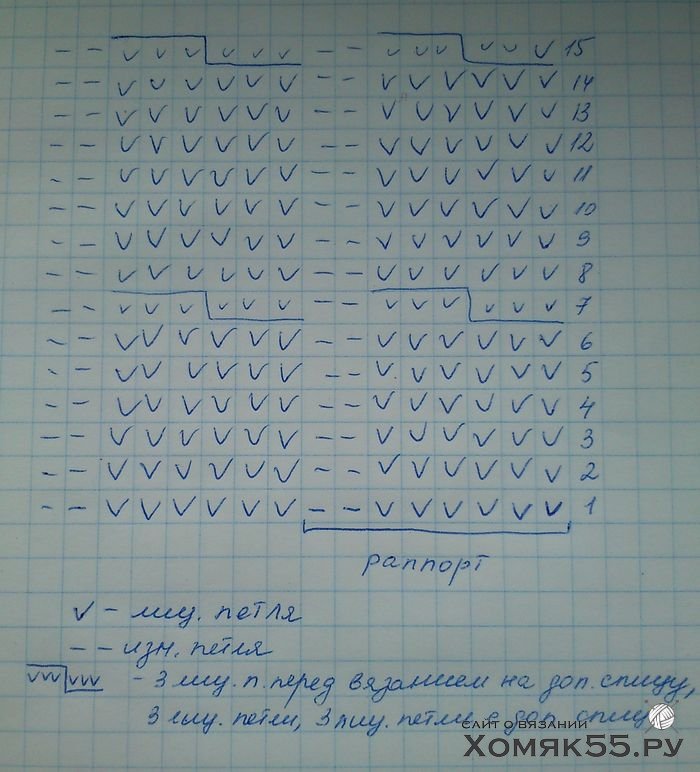 – – v v v v v v – – v v v v v v 15
– – v v v v v v – – v v v v v v 14
– – v v v v v v – – v v v v v v 13
– – v v v v v v – – v v v v v v 12
– – v v v v v v – – v v v v v v 11
– – v v v v v v – – v v v v v v 10
– – v v v v v v – – v v v v v v 9
– – v v v v v v – – v v v v v v 8
– – v v v v v v – – v v v v v v 7
– – v v v v v v – – v v v v v v 6
– – v v v v v v – – v v v v v v 5
– – v v v v v v – – v v v v v v 4
– – v v v v v v – – v v v v v v 3
– – v v v v v v – – v v v v v v 2
– – v v v v v v – – v v v v v v 1
раппорт
v – лиц. петля
– – изн. петля
vvv vvv – 3 лиц. п. перед вязанием на доп. спицу,
3 лиц. петли, 3 лиц. петли с доп. спицы
САЙТ О ВЯЗАНИИ
Хомяк55.ру